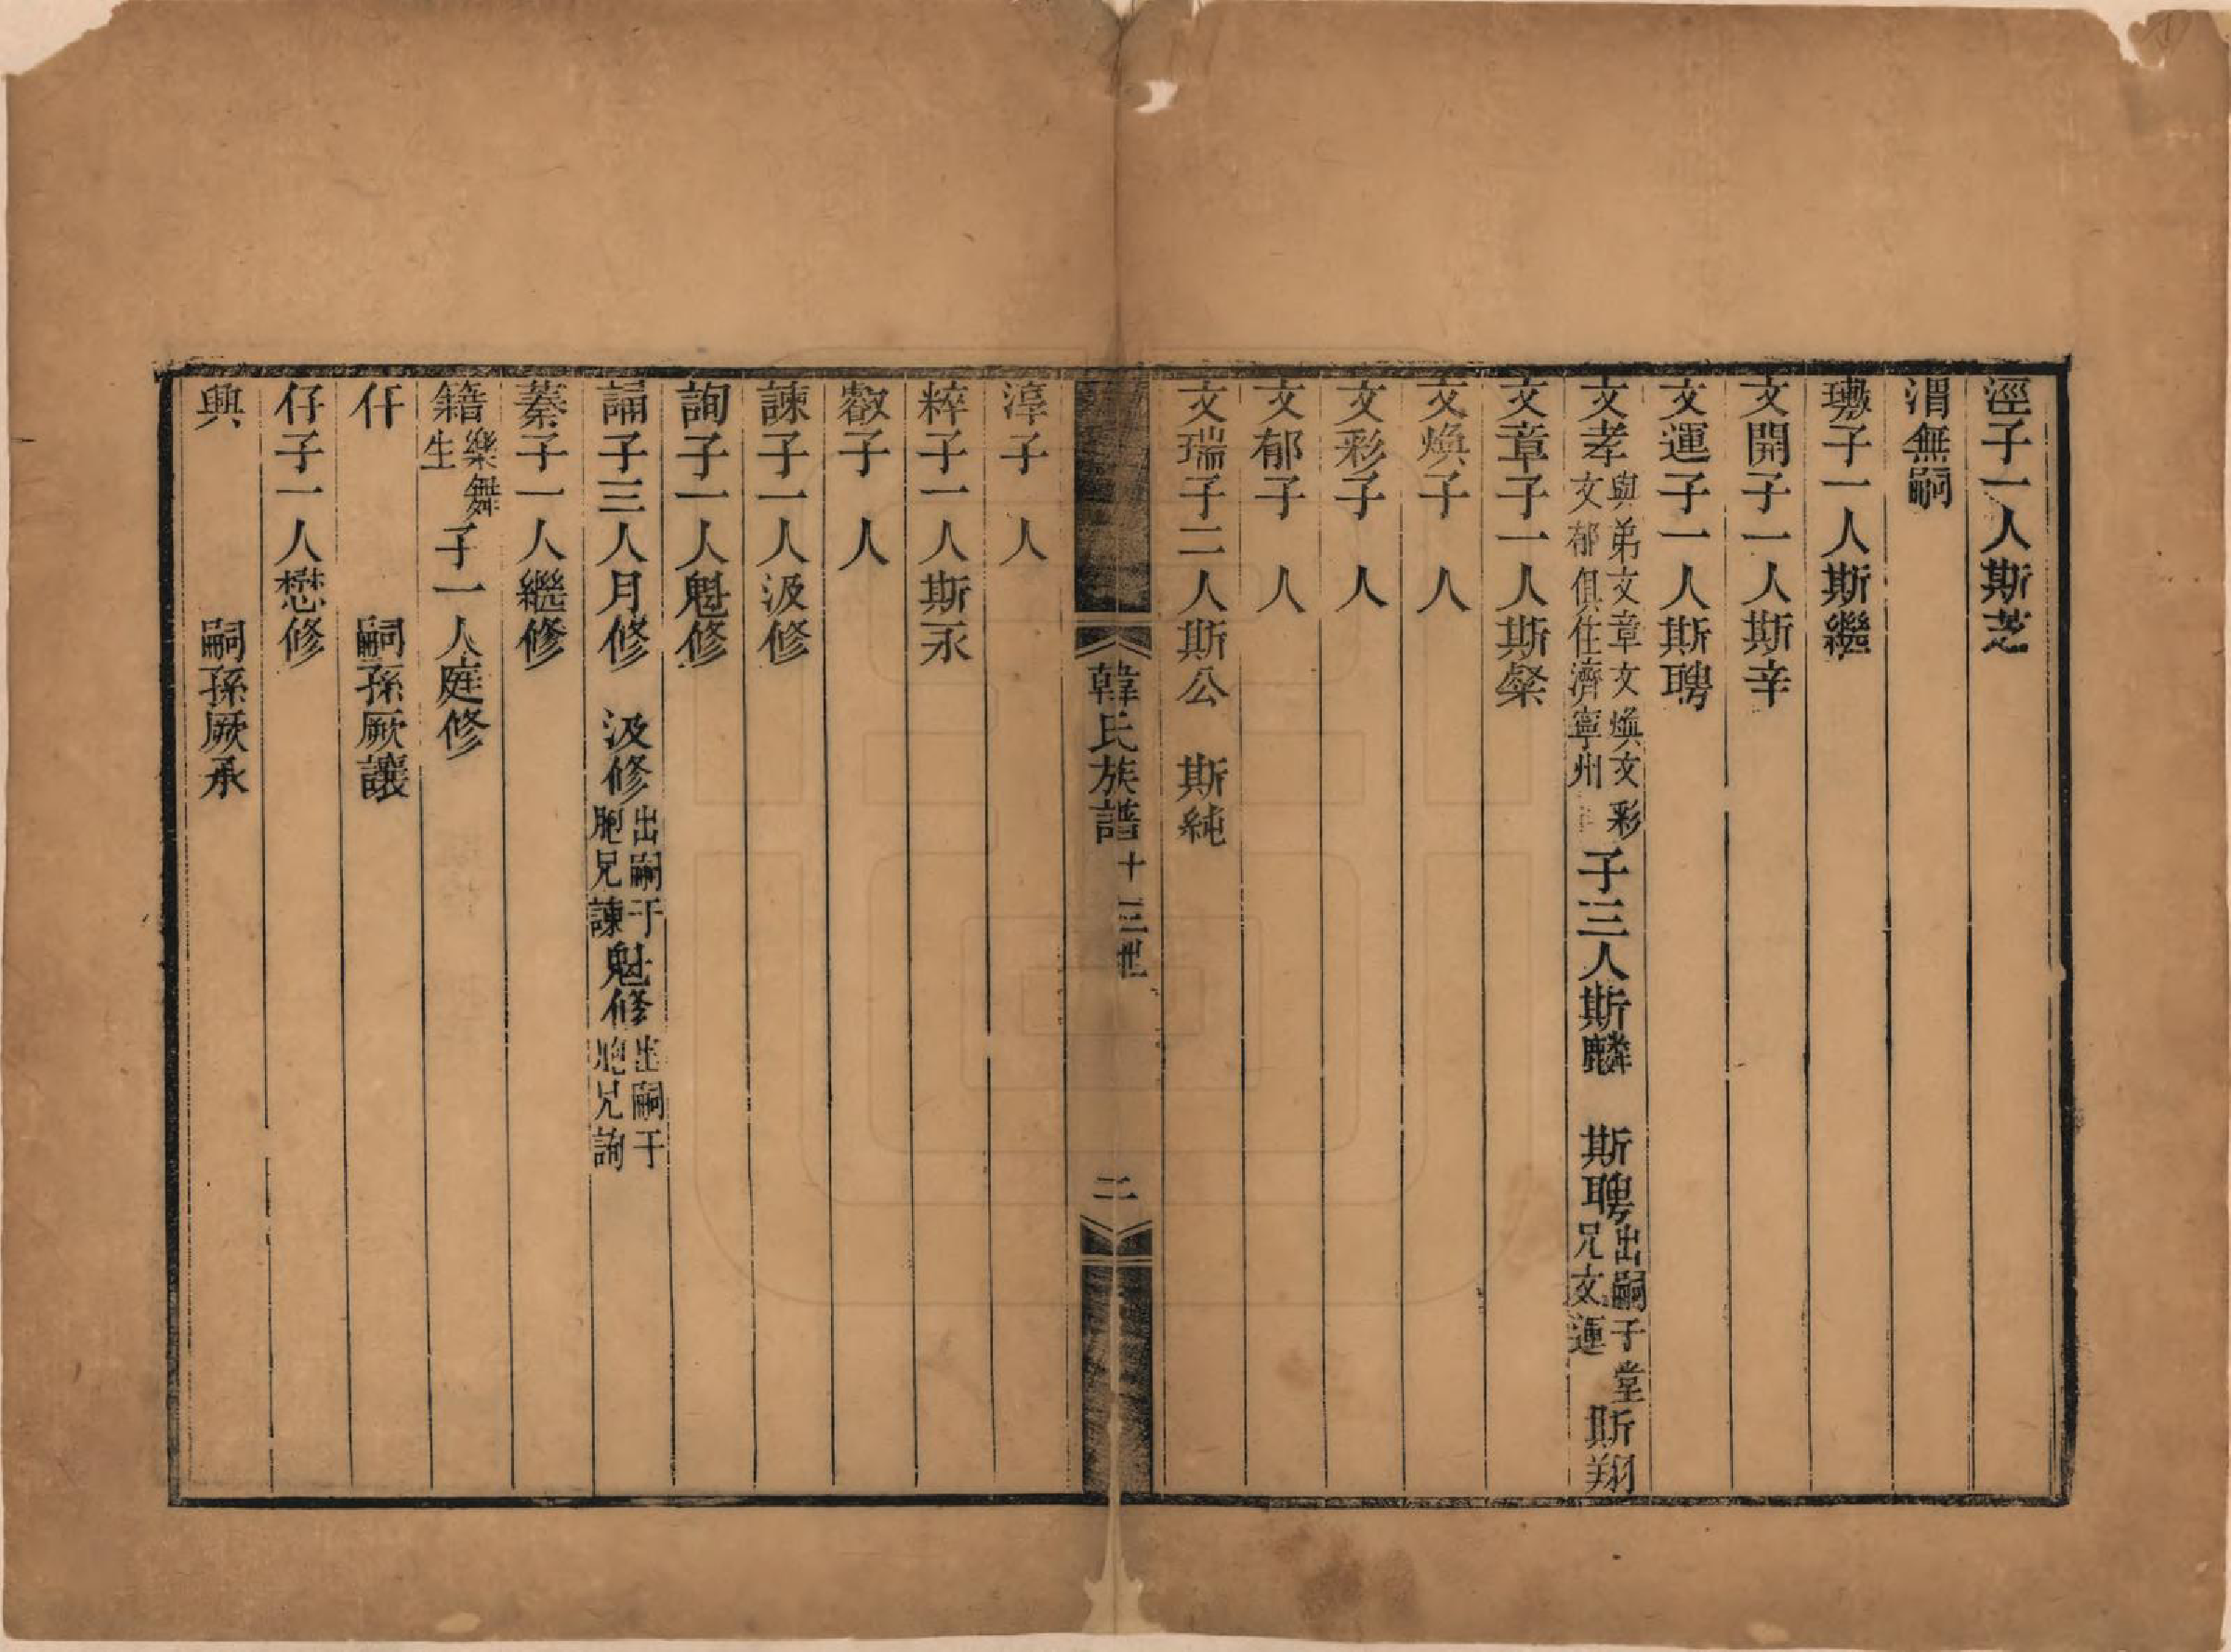 涇子一人斯芝
渭無嗣
璷子一人斯繼
文開子一人斯辛
文運子一人斯聘
文孝與弟文章文煥文彩文郁俱住濟寧州子三人斯麟　斯聘出嗣子堂兄文運　斯翔
文章子一人斯粲
文煥子　人
文彩子　人
文郁子　人
文瑞子二人斯公　斯純
韓氏族譜　十三世　二
漳子　人
粹子一人斯永
敪子　人
諫子一人汲修
詢子一人魁修
誦子三人月修　汲修出嗣于胞兄諫魁修出嗣于胞兄詢
蓁子一人繼修
籍樂舞生子一人庭修
仟　　嗣孫厥讓
仔子一人懋修
興　　嗣孫厥承